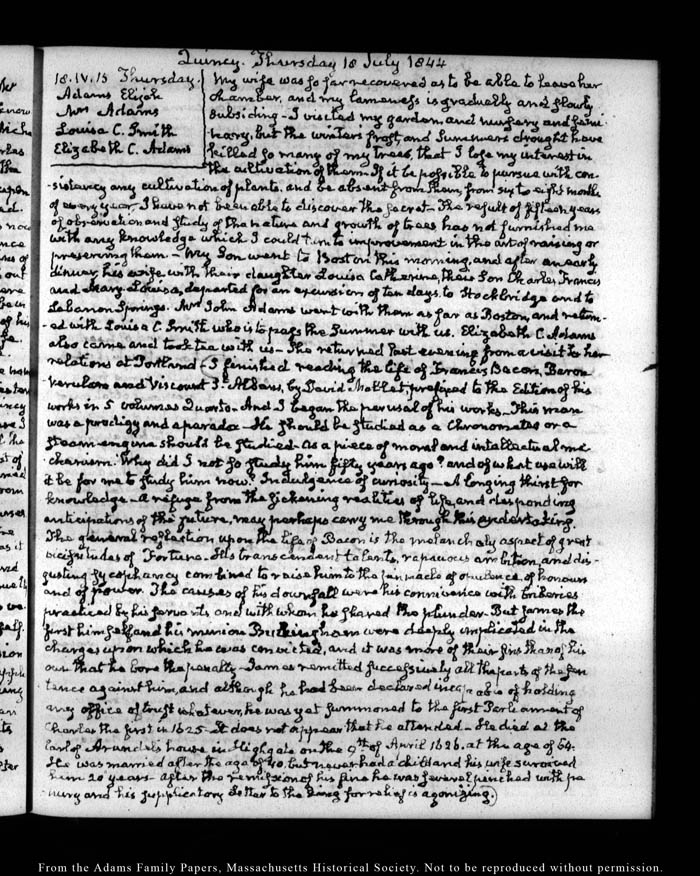 Quincy. Thursday 18 July 1844
18. IV. 15 Thursday.
Adams Elizh
Mrs Adams
Louisa C. Smith
Elizabeth C. Adams
My wife was so far recovered as to be able to leave her
chamber, and my lameness is gradually and slowly
subsiding - I visited my garden and nursery and
but the winters frost, and Summers drought have
killed so many of my trees, that I lose my interest in
the cultivation of them. If it be possible to pursue with con-
-sistency any cultivation of plants, and be absent from them, from six to eight months
of every year I have not been able to discover the secret - The result of fifteen years
of observation and study of the nature and growth of trees has not furnished me
with any knowledge which I could turn to improvement in the art of raising or
preserving them - My Son went to Boston this morning, and after an early
dinner, his wife with their daughter Louisa Catherine, their Son Charles Francis
and Mary Louisa, departed for an excursion of ten days, to Stockbridge and to
Lebanon Springs. Mrs John Adams went with them as far as Boston, and return-
-ed with Louisa C. Smith who is to pass the Summer with us. Elizabeth C. Adams
also came and took tea with us - She returned last evening from a visit to her
relations at Portland - I finished reading the life of Francis Bacon, Baron
Verulam and Viscount St Albans, by David Mallet prefixed to the Edition of his
works in 5 volumes Quarto - And I began the perusal of his works - This man
was a prodigy and a paradox - He should be studied as a Chronometer or a
steam-engine should be studied - as a piece of moral and intellectual me-
chanism. Why did I not so study him fifty years ago? and of what use will
it be for me to study him now? Indulgence of curiosity - A longing thirst for
knowledge - a refuge from the sickening realities of life, and desponding
anticipations of the future, may perhaps carry me through this undertaking.
The general reflection upon the life of Bacon is the melancholy aspect of great
vicissitudes of Fortune. His transcendent talents, rapacious ambition, and dis-
gusting sycophancy combined to raise him to the pinnacle of opulence, of honours
and of power. The causes of his downfall were his connivence with briberies
practiced by his servants and with whom he shared the plunder - But James the
first himself, and his minion Buckingham were deeply implicated in the
charges upon which he was convicted, and it was more of their sins than of his
own that he bore the penalty - James remitted successively all the parts of the sen
tence against him, and although he had been declared incapable of holding
any office of trust whatever, he was yet summoned to the first Parliament of
Charles the first in 1625 - It does not appear that he attended - He died at the
Earl of Arundel's house in Highgate on the 9th of April 1626. at the age of 64.
He was married after the age of 40. but never had a child and his wife survived
him 20 years - after the remission of his fine he was severely pinched with pe
nury and his supplicatory letter to the King for relief is agonizing.)
From the Adams Family Papers, Massachusetts Historical Society. Not to be reproduced without permission.